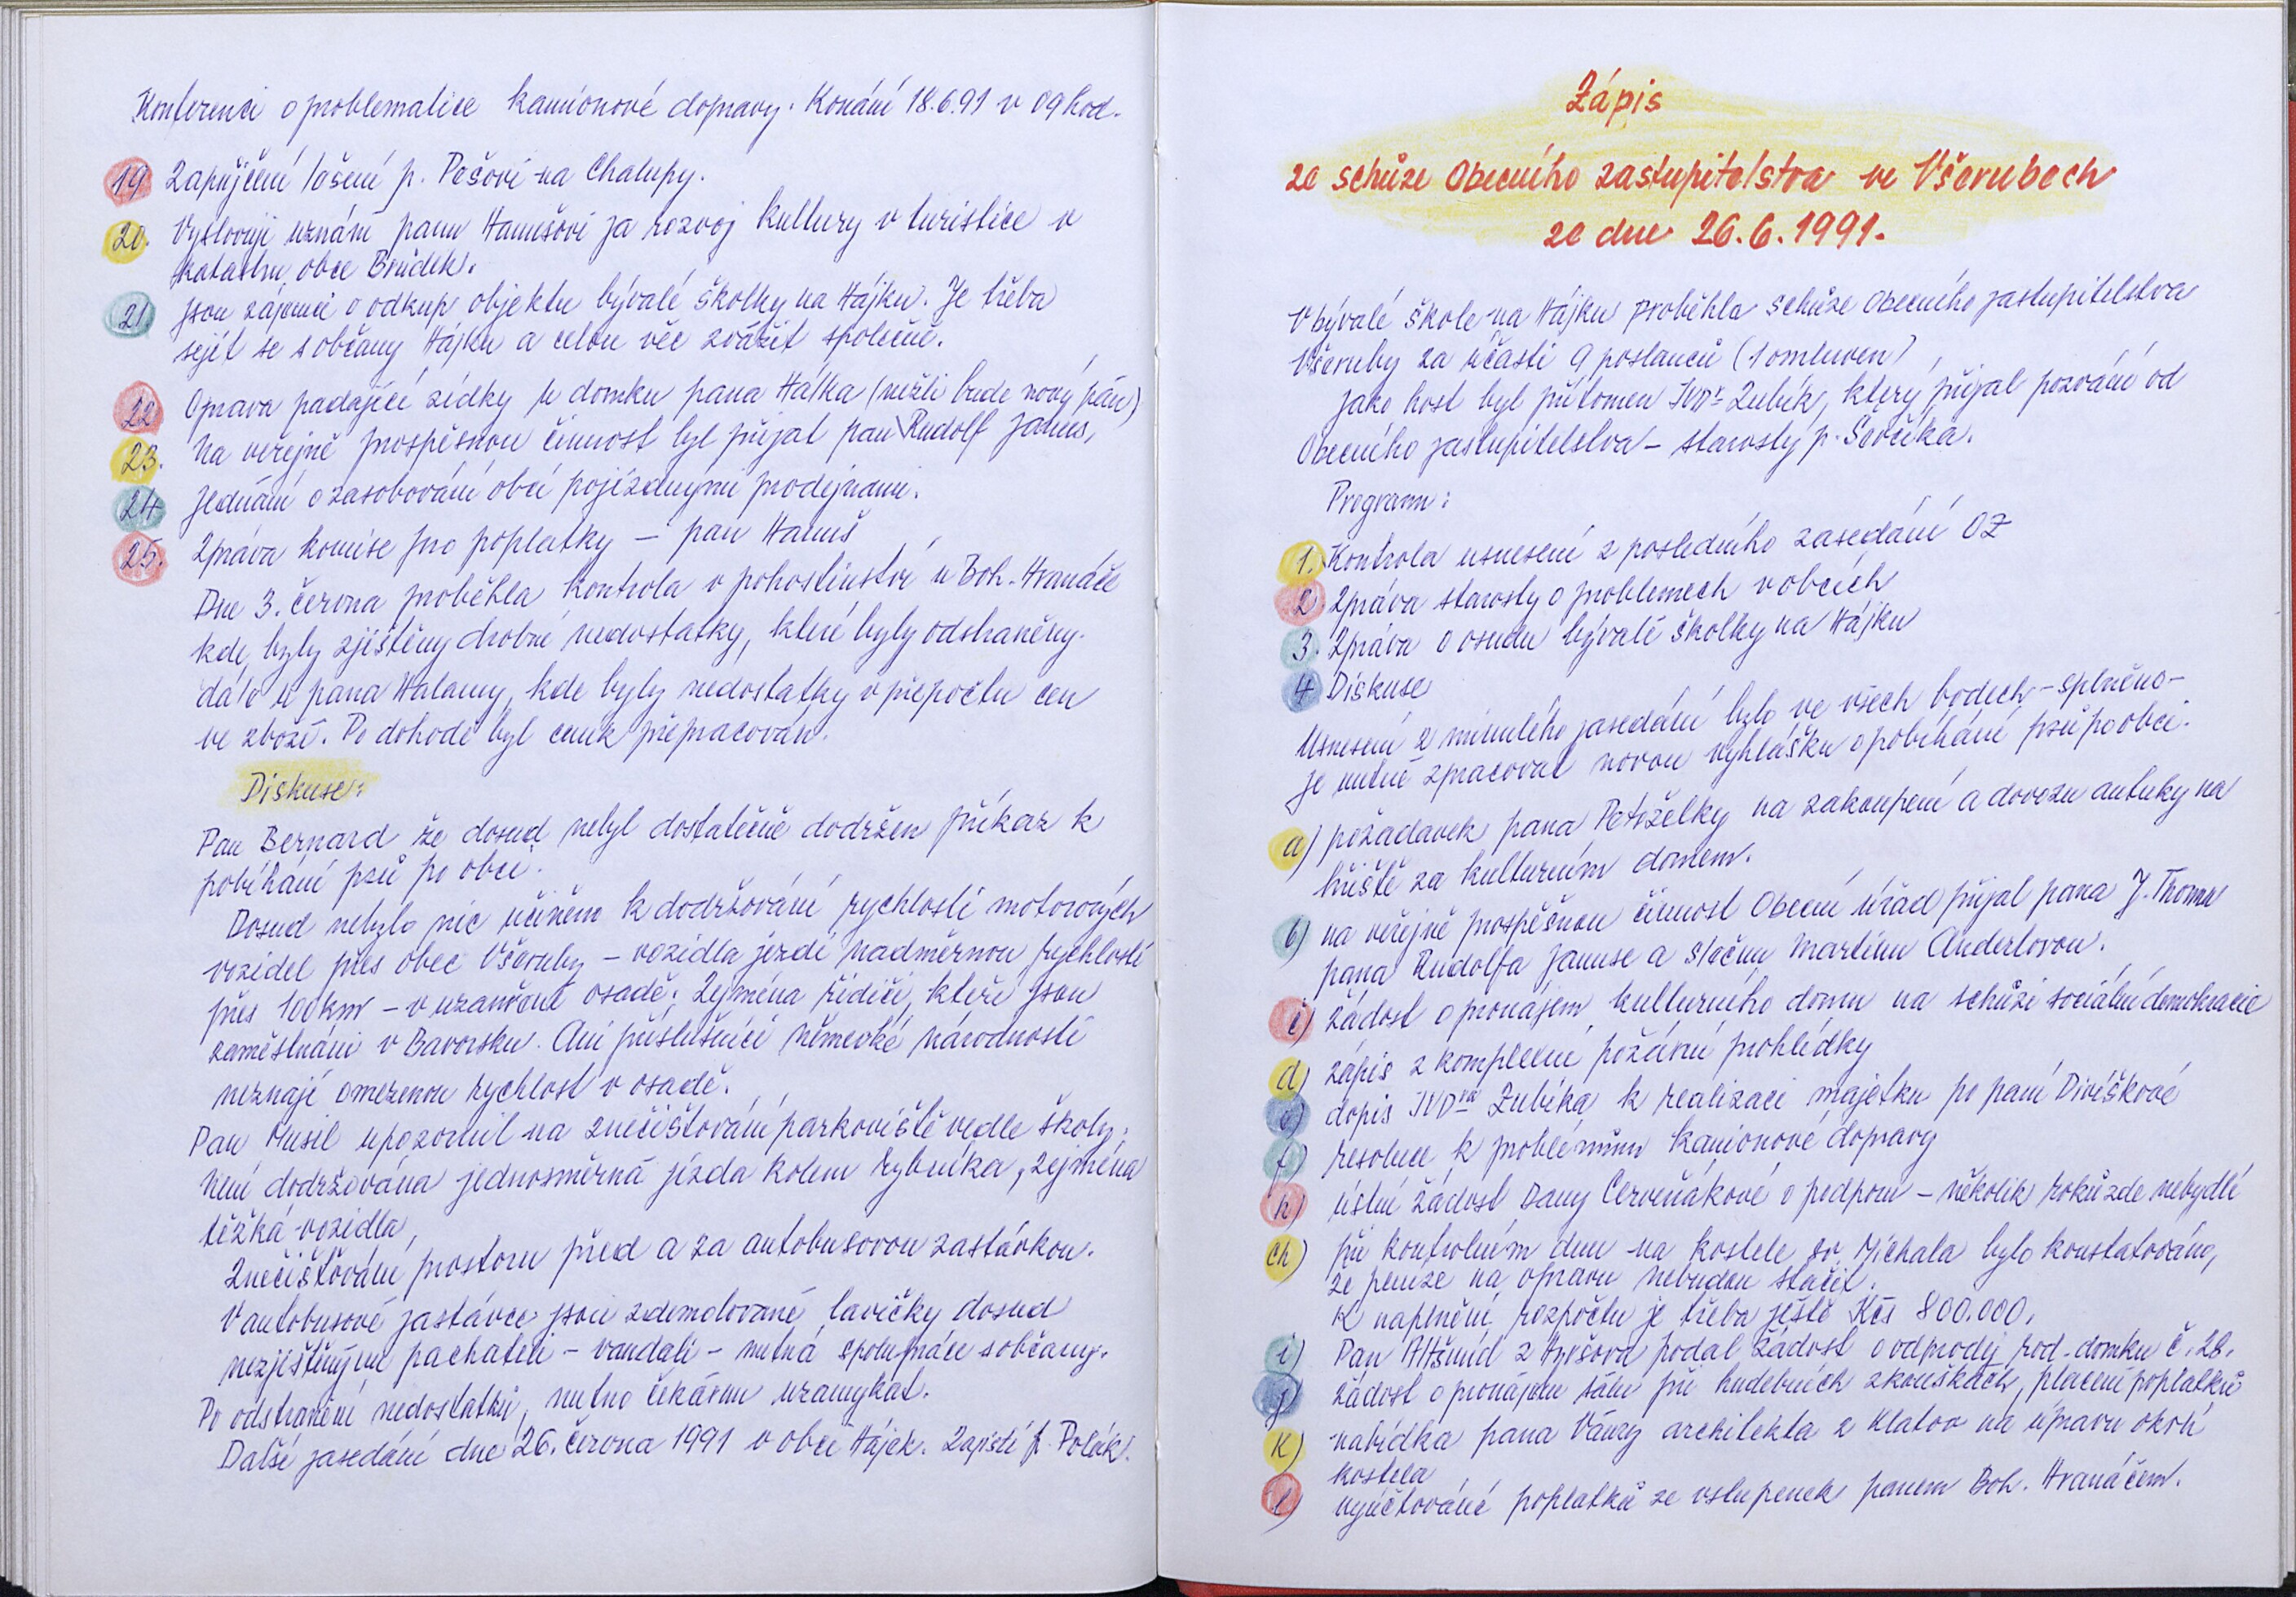 Konferenci o problematice kamionové dopravy. Konání 18.6.91 v 09 hod.
19 Zapůjčení lešení p. Pešovi na Chalupy.
20. Vyslovuji uznání panu Hanušovi za rozvoj kultury v turistice v
katastru obce Brůdek.
21. Jsou zájemci o odkup objektu bývalé školky na Hájku. Je třeba
sejít se s občany Hájku a celou věc zvážit společně.
22 Oprava padající zídky u domku pana Hálka (nežli bude nový pán)
23. Na veřejně prospěšnou činnost byl přijat pan Rudolf Janus,
24 Jednání o zasobování obcí pojízdnými prodejnami.
25. Zpráva komise pro poplatky – pan Hanuš
Dne 3. června proběhla kontrola v pohostinství u Boh. Hranáče
kde byly zjištěny drobné nedostatky, které byly odstraněny.
dále u pana Halamy, kde byly nedostatky v přepočtu cen
ve zboží. Po dohodě byl ceník přepracován.
Diskuse:
Pan Bernard že dosud nebyl dostatečně dodržen příkaz k
pobíhání psů po obci.
Dosud nebylo nic učiněno k dodržování rychlosti motorových
vozidel přes obec Všeruby – vozidla jezdí nadměrnou rychlostí
přes 100 km – v uzavřené osadě. Zejména řidiči, kteří jsou
zaměstnáni v Bavorsku. Ani příslušníci německé národnosti
neznají omezenou rychlost v osadě.
Pan Musil upozornil na znečišťování parkoviště vedle školy.
Není dodržována jednosměrná jízda kolem rybníka, zejména
těžká vozidla,
Znečišťování prostoru před a za autobusovou zastávkou.
V autobusové zastávce jsou zdemolované lavičky dosud
nezjištěnými pachateli – vandali – nutná spolupráce s občany.
Po odstranění nedostatků, nutno čekárnu uzamykat.
Další zasedání dne 26. června 1991 v obci Hájek. Zapsal p. Polák.
Zápis
ze schůze Obecního zastupitelstva ve Všerubech
ze dne 26.6.1991.
V bývalé škole na Hájku proběhla schůze Obecního zastupitelstva
Všeruby za účasti 9 poslanců (1 omluven)
Jako host byl přítomen JUDr Zubík, který přijal pozvání od
Obecního zastupitelstva – starosty p. Ševčíka.
Program:
1. Kontrola usnesení z posledního zasedání OZ
2. Zpráva starosty o problemech v obcích
3. Zpráva o osudu bývalé školky na Hájku
4 Diskuse
Usnesení z minulého zasedání bylo ve všech bodech – splněno –
je nutné zpracovat novou vyhlášku o pobíhání psů po obci.
a) požadavek pana Petrželky na zakoupení a dovozu antuky na
hřiště za kulturním domem.
b) na veřejně prospěšnou činnost Obecní úřad přijal pana J. Thoma
pana Rudolfa Januse a slečnu Martinu Anderlovou.
c) žádost o pronájem kulturního domu na schůzi sociální demokracie
d) zápis z komplexní požární prohlídky
e) dopis JUDra Zubíka k realizaci majetku po paní Divíškové
f) resoluce k problémům kamionové dopravy
h) ústní žádost Dany Červeňákové o podporu – několik roků zde nebydlí
ch) při kontrolním dnu na kostele sv. Michala bylo konstatováno,
že peníze na opravu nebudou stačit.
K naplnění rozpočtu je třeba ještě Kčs 800.000,
i) Pan Altšmíd z Hyršova podal žádost o odprodej rod. domku č. 26.
j) žádost o pronájem sálu při hudebních zkouškách, placení poplatků
k) nabídka pana Vávry architekta z Klatov na úpravu okolí
kostela
l) vyúčtování poplatků ze vstupenek panem Boh. Hranáčem.